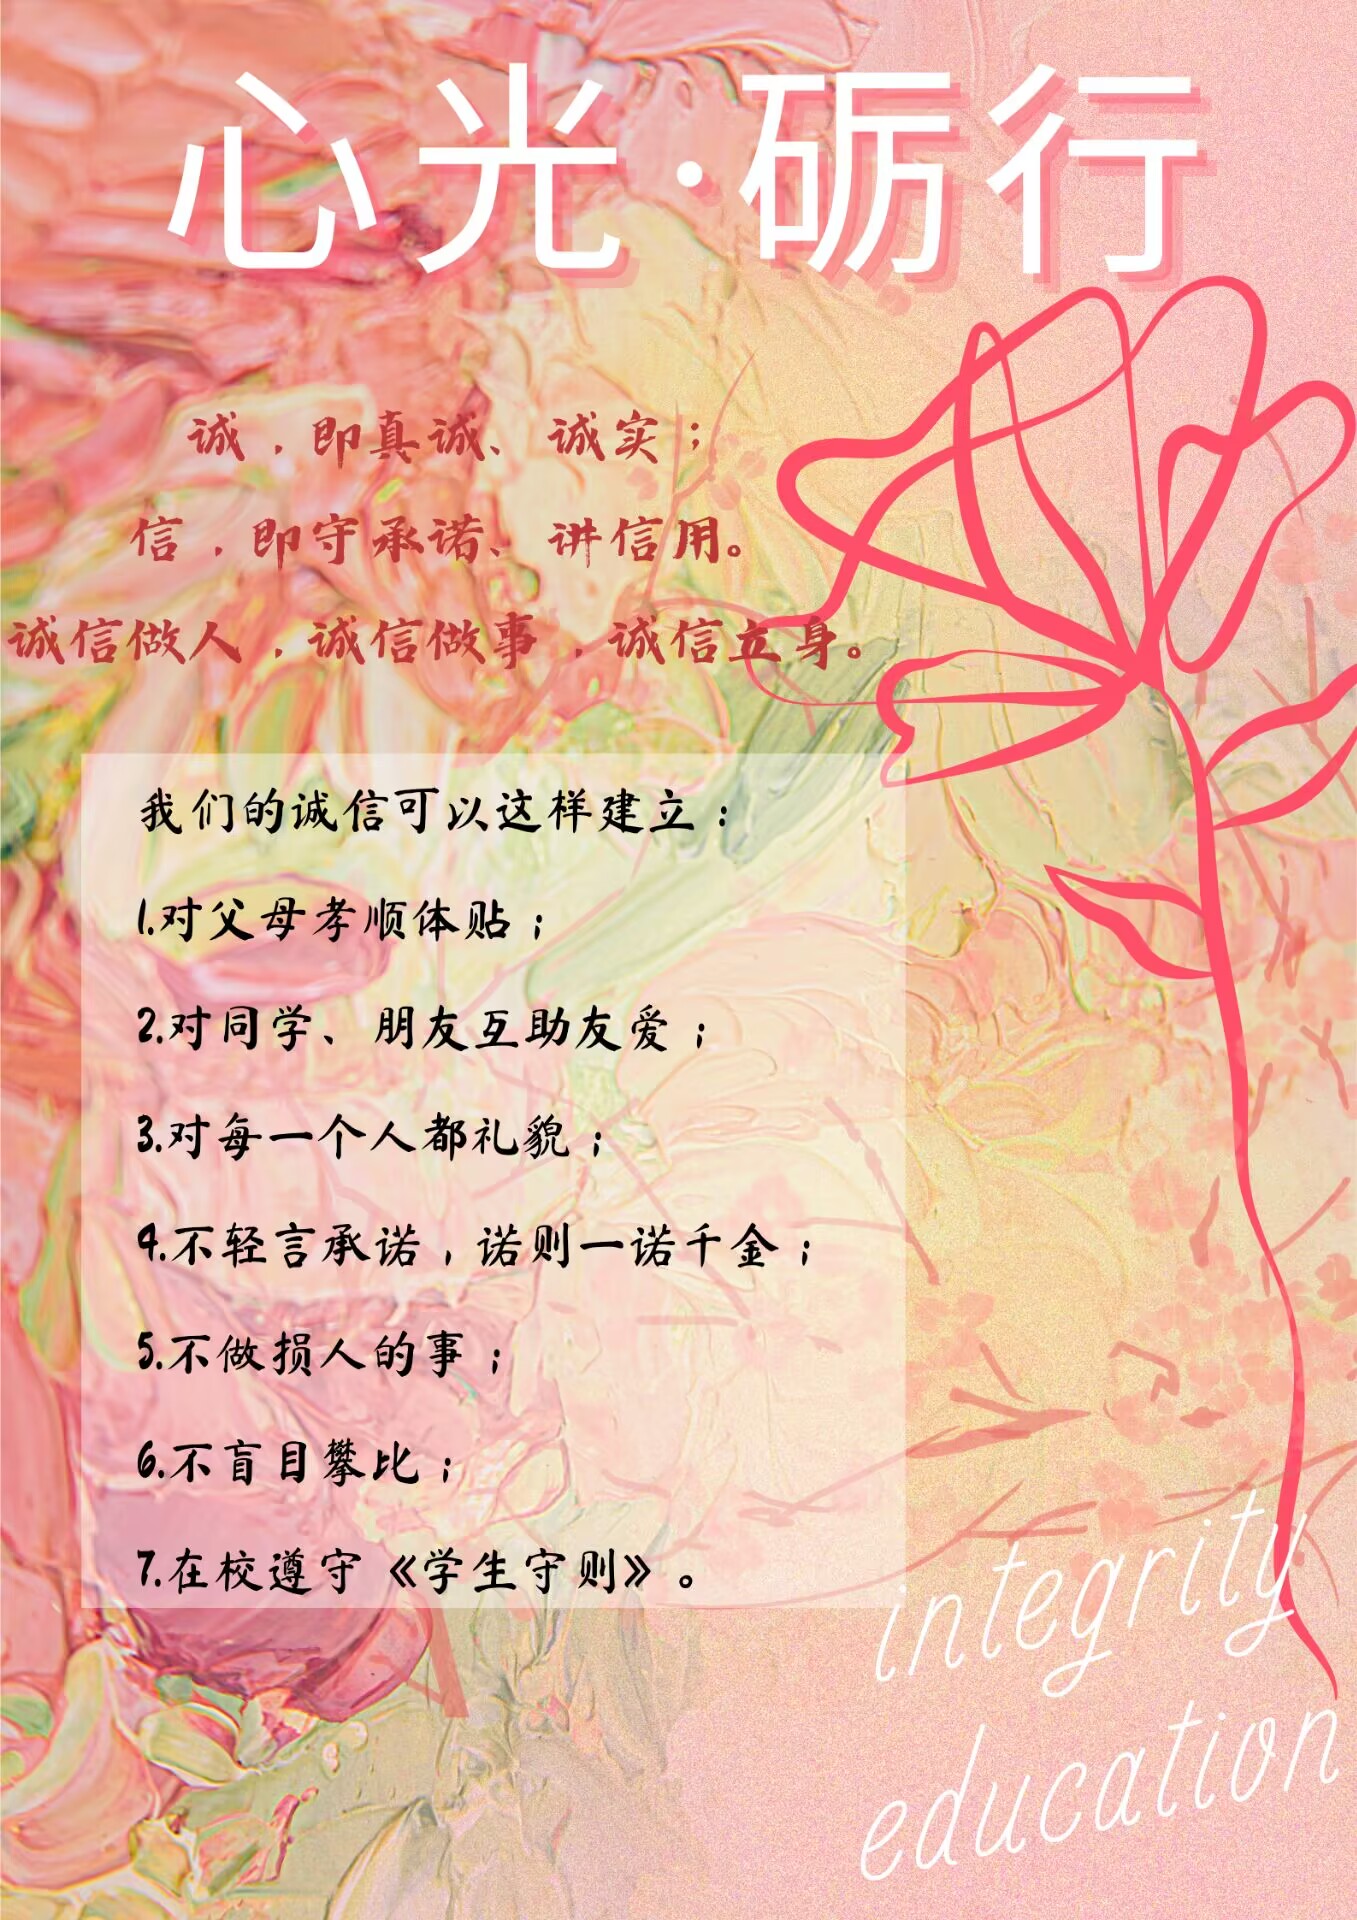 心光·砺行
诚，即真诚、诚实；
信，即守承诺、讲信用。
诚信做人，诚信做事，诚信立身。
我们的诚信可以这样建立：
1.对父母孝顺体贴；
2.对同学、朋友互助友爱；
3.对每一个人都礼貌；
4.不轻言承诺，诺则一诺千金；
5.不做损人的事；
6.不盲目攀比；
7.在校遵守《学生守则》。
integrity
education